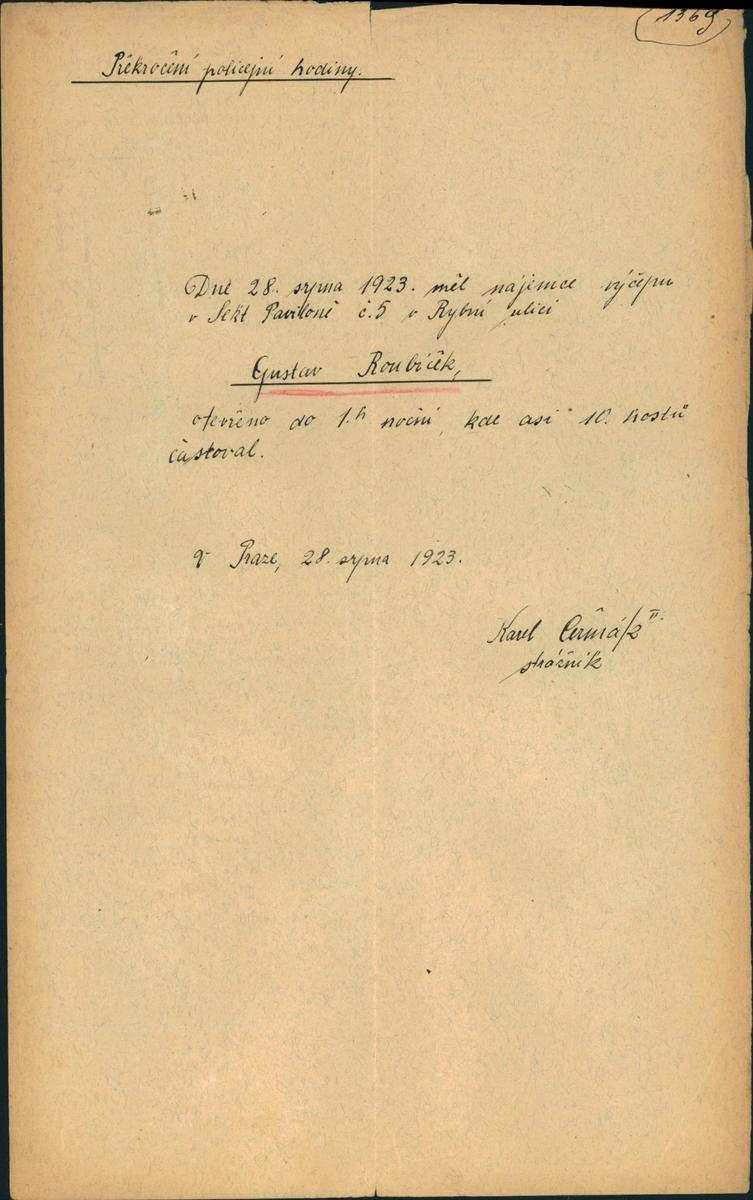 1369
Překročení policejní hodiny.
Dne 28. srpna 1923. měl nájemce výčepu
v Sekt Paviloně č.5 v Rybní ulici
Gustav Roubíček,
otevřeno do 1.h noční, kde asi 10. hostů
častoval.
V Praze, 28. srpna 1923.
Karel Čermák II.
strážník